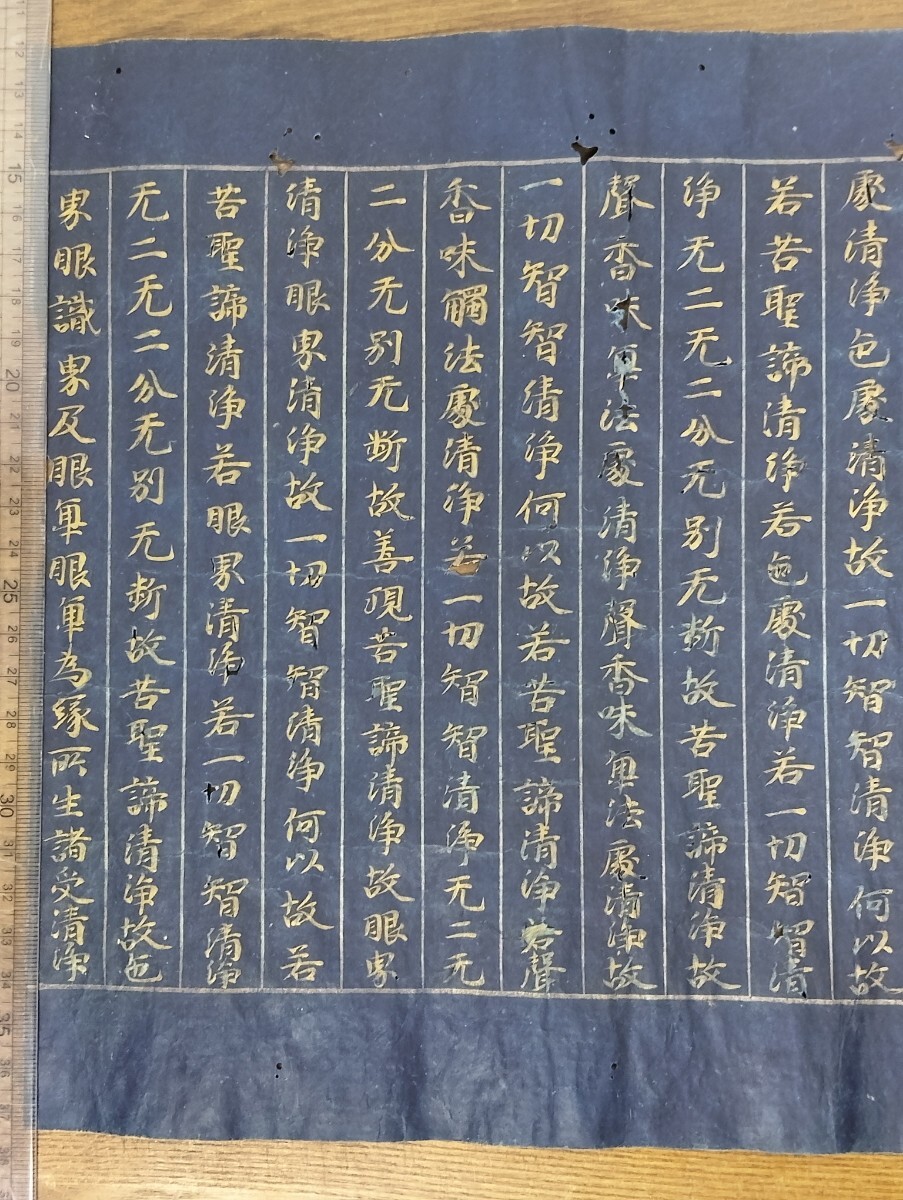 處清淨色處清淨故一切智智清淨何以故
若苦聖諦清淨若色處清淨若一切智智清
淨无二无二分无別无断故苦聖諦清淨故
聲香味觸法處清淨聲香味觸法處清淨故
一切智智清淨何以故若苦聖諦清淨若聲
香味觸法處清淨若一切智智清淨无二无
二分无別无断故善現苦聖諦清淨故眼界
清淨眼界清淨故一切智智清淨何以故若
苦聖諦清淨若眼界清淨若一切智智清淨
无二无二分无別无断故苦聖諦清淨故色
界眼識界及眼觸眼觸為縁所生諸受清淨